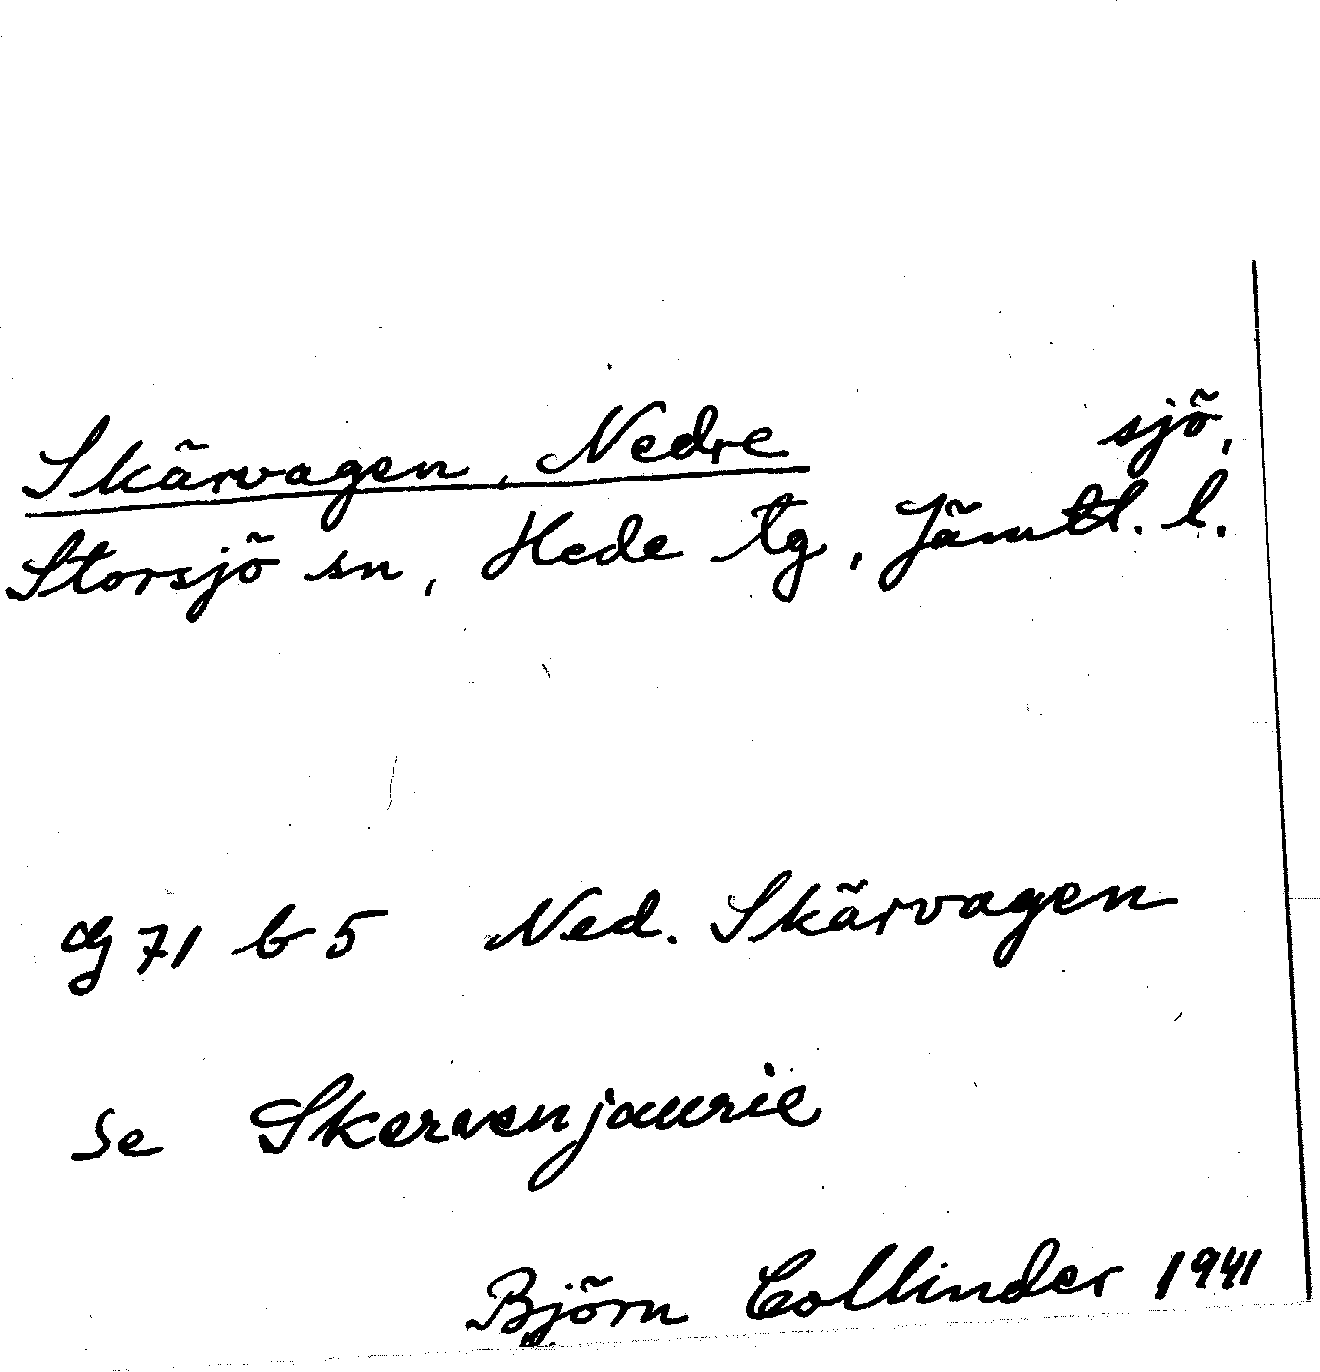 Skärvagen, Nedre sjö,
Storsjö sn, Hede tg, Jämtl. l.
dg 71 b 5 Ned. Skärvagen
Se Skervenjaurie
Björn Collinder 1941